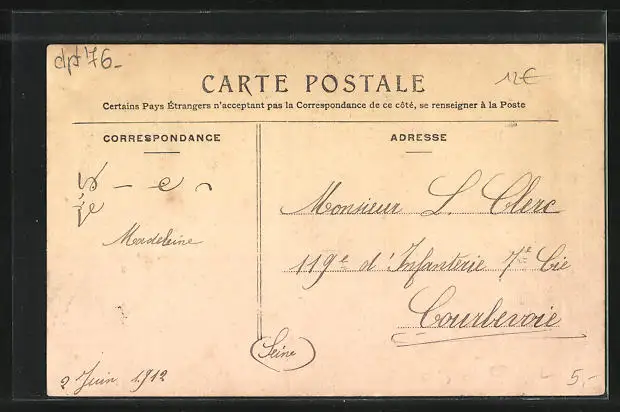 dpt 76-
12€
CARTE POSTALE
Certains Pays Étrangers n'acceptant pas la Correspondance de ce côté, se renseigner à la Poste
CORRESPONDANCE
Madeleine
2 Juin 1912
ADRESSE
Monsieur L. Clerc
119e d'Infanterie 7e Cie
Courbevoie
(Seine)
5.-